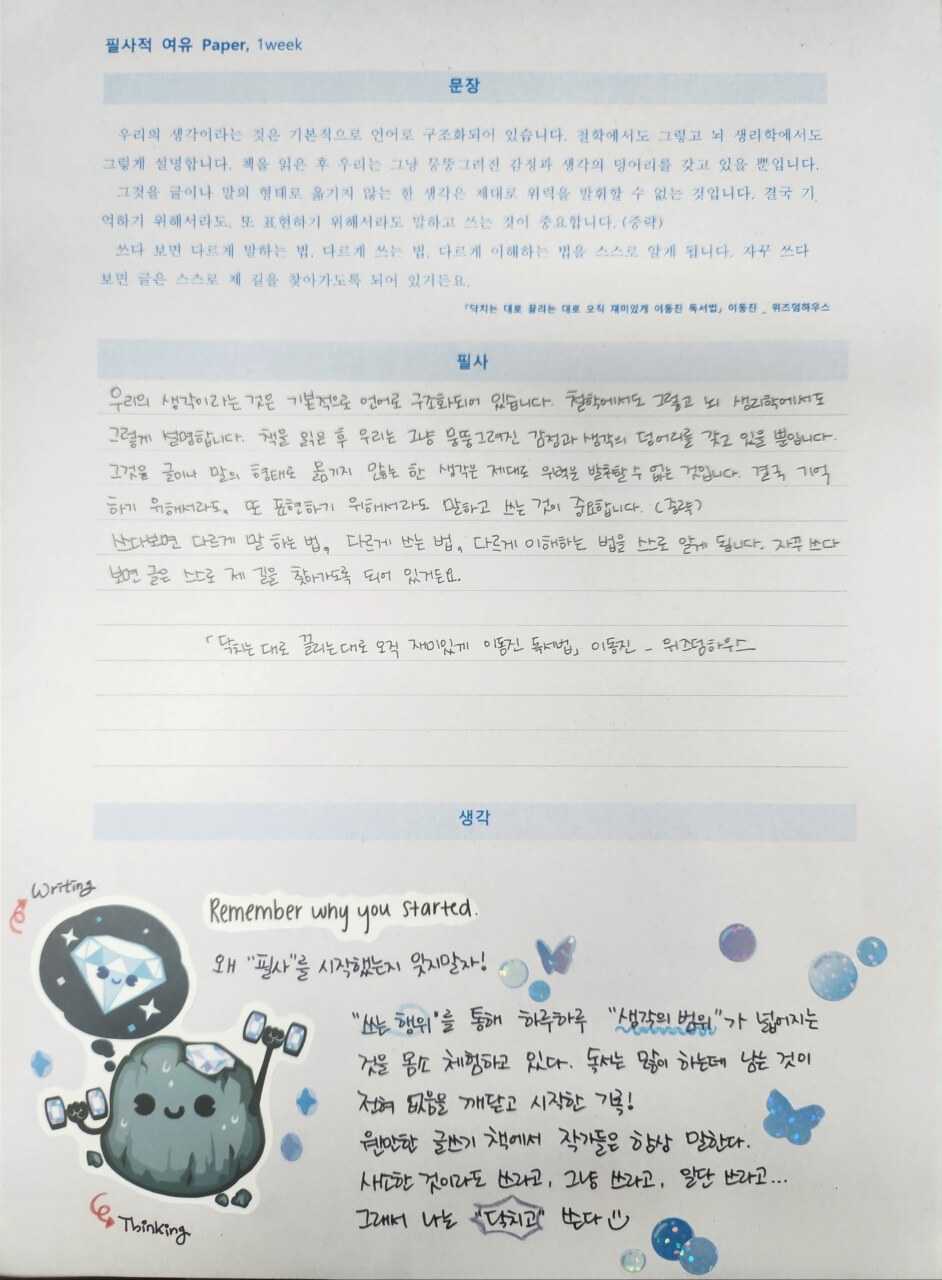 필사적 여유 Paper, 1week
문장
우리의 생각이라는 것은 기본적으로 언어로 구조화되어 있습니다. 철학에서도 그렇고 뇌 생리학에서도
그렇게 설명합니다. 책을 읽은 후 우리는 그냥 뭉뚱그려진 감정과 생각의 덩어리를 갖고 있을 뿐입니다.
그것을 글이나 말의 형태로 옮기지 않는 한 생각은 제대로 위력을 발휘할 수 없는 것입니다. 결국 기
억하기 위해서라도, 또 표현하기 위해서라도 말하고 쓰는 것이 중요합니다. (중략)
쓰다 보면 다르게 말하는 법, 다르게 쓰는 법, 다르게 이해하는 법을 스스로 알게 됩니다. 자꾸 쓰다
보면 글은 스스로 제 길을 찾아가도록 되어 있거든요.
「닥치는 대로 끌리는 대로 오직 재미있게 이동진 독서법」 이동진 _ 위즈덤하우스
필사
우리의 생각이라는 것은 기본적으로 언어로 구조화되어 있습니다. 철학에서도 그렇고 뇌 생리학에서도
그렇게 설명합니다. 책을 읽은 후 우리는 그냥 뭉뚱그려진 감정과 생각의 덩어리를 갖고 있을 뿐입니다.
그것을 글이나 말의 형태로 옮기지 않는 한 생각은 제대로 위력을 발휘할 수 없는 것입니다. 결국 기억
하기 위해서라도, 또 표현하기 위해서라도 말하고 쓰는 것이 중요합니다. (중략)
쓰다보면 다르게 말 하는 법, 다르게 쓰는 법, 다르게 이해하는 법을 스스로 알게 됩니다. 자꾸 쓰다
보면 글은 스스로 제 길을 찾아가도록 되어 있거든요.
「닥치는 대로 끌리는 대로 오직 재미있게 이동진 독서법」 이동진 _ 위즈덤하우스
생각
Writing
Remember why you started.
왜 "필사"를 시작했는지 잊지말자!
"쓰는 행위"를 통해 하루하루 "생각의 범위"가 넓어지는
것을 몸소 체험하고 있다. 독서는 많이 하는데 남는 것이
전혀 없음을 깨닫고 시작한 기록!
웬만한 글쓰기 책에서 작가들은 항상 말한다.
사소한 것이라도 쓰라고, 그냥 쓰라고, 일단 쓰라고...
그래서 나는 "닥치고" 쓴다
Thinking